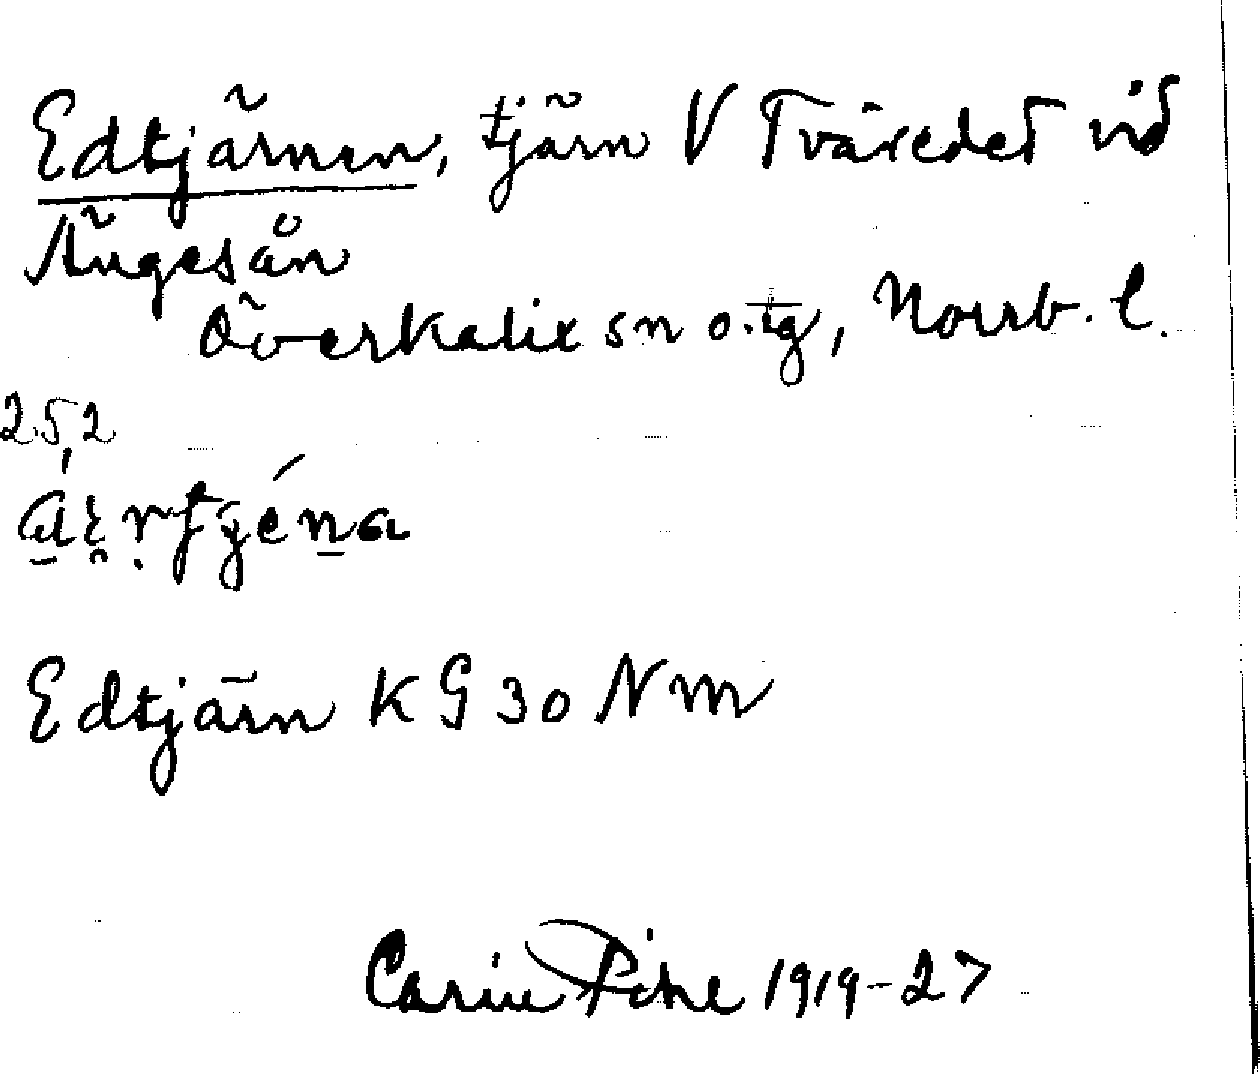 Edtjärnen, tjärn V Tväredet vid
Ängesån
Överkalix sn o. tg, Norrb. l.
252
Edtjärn KG 30 NM
Carin Pihl 1919-27